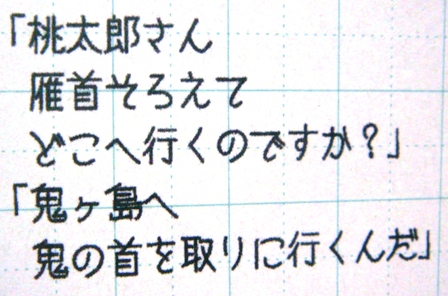 「桃太郎さん
雁首そろえて
どこへ行くのですか？」
「鬼ヶ島へ
鬼の首を取りに行くんだ」